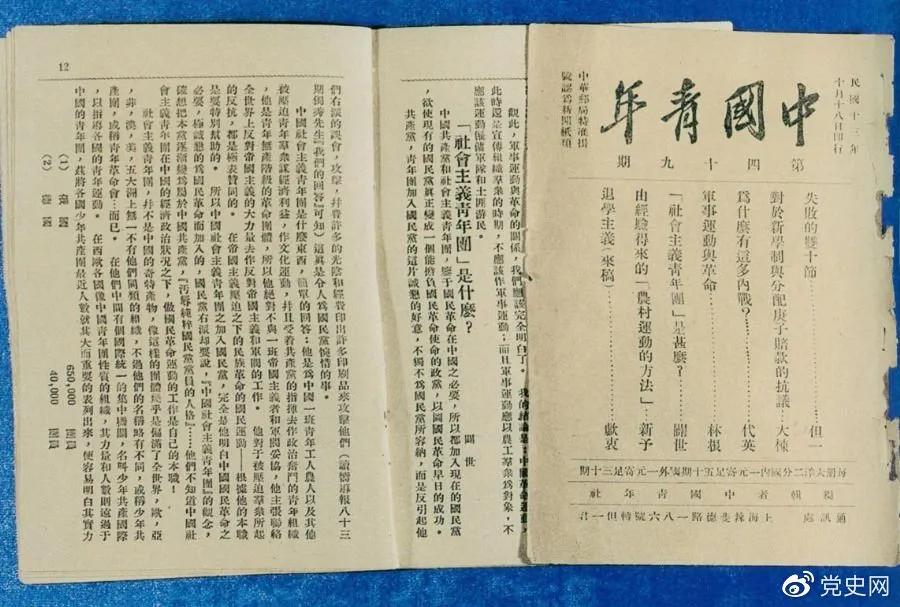 民國十三年
十月十八日印行
中國青年
中華郵局特准掛
號認爲新聞紙類
第四十九期
失敗的雙十節…………但一
對於新學制與分配庚子賠款的抗議…大悚
爲什麼有這多內戰?…………代英
軍事運動與革命…………林根
「社會主義青年團」是甚麼?……闢世
由經驗得來的「農村運動的方法」…新予
退學主義…來稿…………歔衷
每冊大洋二分國內一元寄足五十期國外一元寄足三十期
編輯者中國青年社
通訊處 上海辣斐德路一八六號轉但一君
觀此,軍事運動與革命的關係,我們應該完全明白了。我的結論是:中國革命運動,
此時還是宣傳組織羣衆的時期,不應該作軍事運動;而且軍事運動應以農工羣衆爲對象,不
應該運動僱傭軍隊和土匪游民。
「社會主義青年團」是什麼?
闢世
中國共產黨和社會主義青年團,鑒于國民革命在中國之必要,所以都加入現在的國民黨
,欲使現有的國民黨眞正變成一個能擔負國民革命使命的政黨,以圖國民革命早日的成功。
共產黨,青年團加入國民黨的這片誠懇的好意,不獨不爲國民黨所容納,而是反引起他
12
們右派的誤會,攻擊,幷費許多的光陰和經費印出許多印刷品來攻擊他們(讀嚮導報八十三
期獨秀先生『我們的回答』可知)這眞是令人爲國民黨惋惜的事。
中國社會主義青年團是什麼東西,簡單的回答:他是爲中國一班青年工人農人以及其他
被壓迫青年羣衆謀經濟利益,作文化運動,幷且受着共產黨的指揮去作政治奮鬥的青年組織
,他是青年無產階級的革命團體,所以他絕對不與一班帝國主義者和軍閥妥協,他主張聯絡
全世界上反對帝國主義的大力量去作反對帝國主義和軍閥的工作。他對于被壓迫羣衆所起
的反抗,都是極表贊同的。在帝國主義壓迫之下的民族革命的國民運動——根據他的本職
是要特別幫助的。所以中國社會主義青年團之加入國民黨,完全是他明白中國國民革命之
必要,極誠懇的爲國民革命而加入的,國民黨右派却要說,『中國社會主義青年團』的觀念,
確想把本黨逐漸變爲屬於中國共產黨,『汚辱純粹國民黨黨員的人格』……他們不知道中國社
會主義青年團在中國的經濟政治狀況之下,做國民革命運動的工作是自己的本職!
社會主義青年團,幷不是中國的奇特產物,像這樣的團體幾乎是徧滿了全世界,歐,亞
,非,澳,美,五大洲上無一不有他們同類的組織,不過他們的名稱略有不同,或稱少年共
產團,或稱青年革命會…而已。在他們中間有個國際統一的集中機關,名叫少年共產國際
,以指導各國的青年運動。在西歐各國像中國青年團性質的組織,其力量和人數則遠過于
中國的青年團,茲將各國少年共產團最近人數就其大而重要的表列出來,便容易明白其實力
(1) 俄國 650,000 團員
(2) 德國 40,000 團員
党史网